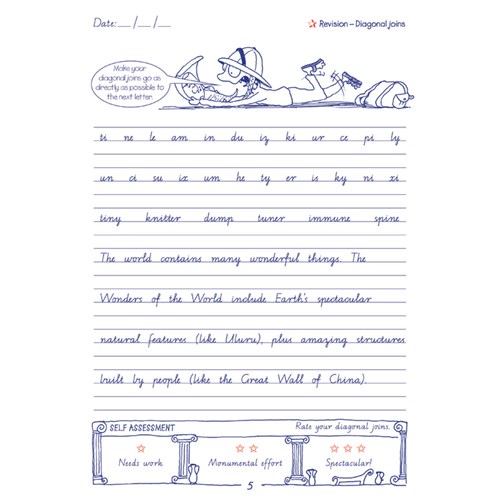 Date: __/__/__
☆ Revision – Diagonal joins
Make your
diagonal joins go as
directly as possible to
the next letter.
ti ne le am in du iz ki ur ce pi ly
un ci su ix um he ty er is ky ni xi
tiny knitter dump tuner immune spine
The world contains many wonderful things. The
Wonders of the World include Earth's spectacular
natural features (like Uluru), plus amazing structures
built by people (like the Great Wall of China).
SELF ASSESSMENT
Rate your diagonal joins.
☆
Needs work
☆ ☆
Monumental effort
☆ ☆ ☆
Spectacular!
5